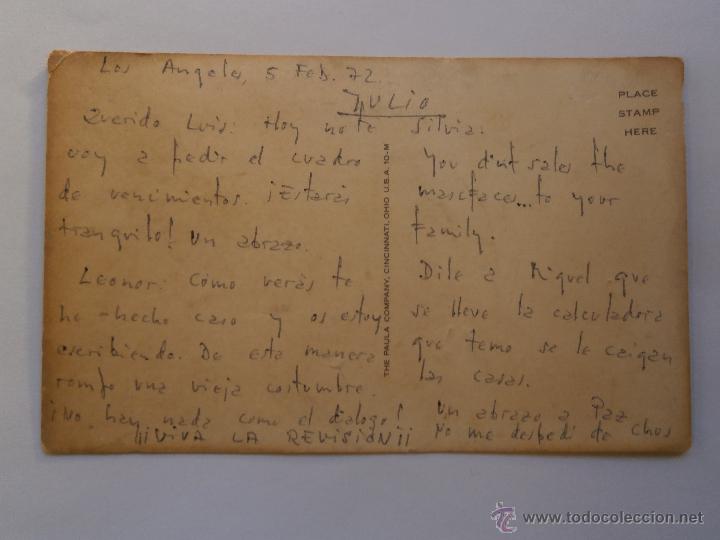 Los Angeles, 5 Feb. 72
JULIO
Querido Luis: Hoy no te
voy a pedir el cuadro
de vencimientos. ¡Estarás
tranquilo! Un abrazo.
Leonor: Cómo verás te
he hecho caso y os estoy
escribiendo. De esta manera
rompo una vieja costumbre.
¡No hay nada como el dialogo!
¡¡¡VIVA LA REVISION¡¡
THE PAULA COMPANY, CINCINNATI, OHIO U.S.A. 10-M
PLACE
STAMP
HERE
Silvia:
You dint sales the
mascfaces... to your
family.
Dile a Miguel que
se lleve la calculadora
que temo se le caigan
las casas.
Un abrazo a Paz
No me despedí de
todocoleccion
todocoleccion.net